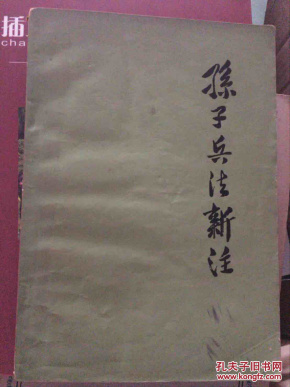 孫子兵法新注
插
cha
孔夫子旧书网